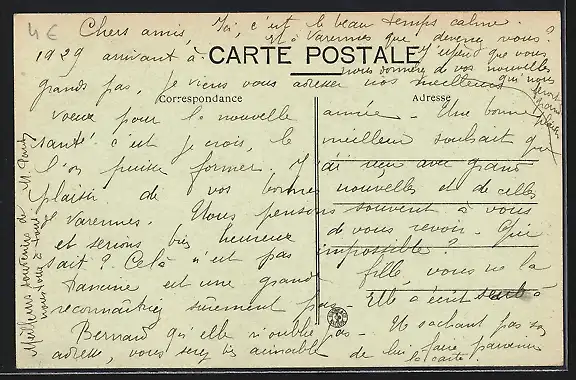 4€
Chers amis, Ici, c'est le beau temps calme.
Et à Varennes que devenez vous ?
1929 arrivant à
CARTE POSTALE
J'espère que vous
nous donnerez de vos nouvelles
qui nous
feront
grand
plaisir
grands pas, je viens vous adresser nos meilleurs
Correspondance
Adresse
voeux pour la nouvelle année. Une bonne
santé c'est je crois, le meilleur souhait que
l'on puisse former. J'ai reçu avec grand
plaisir de vos bonnes nouvelles et de celles
de Varennes. Nous pensons souvent à vous
et serions bien heureux de vous revoir. Qui
sait ? Celà n'est pas impossible ?
est une grande fille, vous ne la
reconnaîtriez sûrement pas. Elle a écrit à
Bernard qu'elle n'oublie pas. Ne sachant pas son
adresse, vous serez bien aimable de lui faire parvenir
la carte.
Meilleurs souvenirs de M.
nous tous à tous